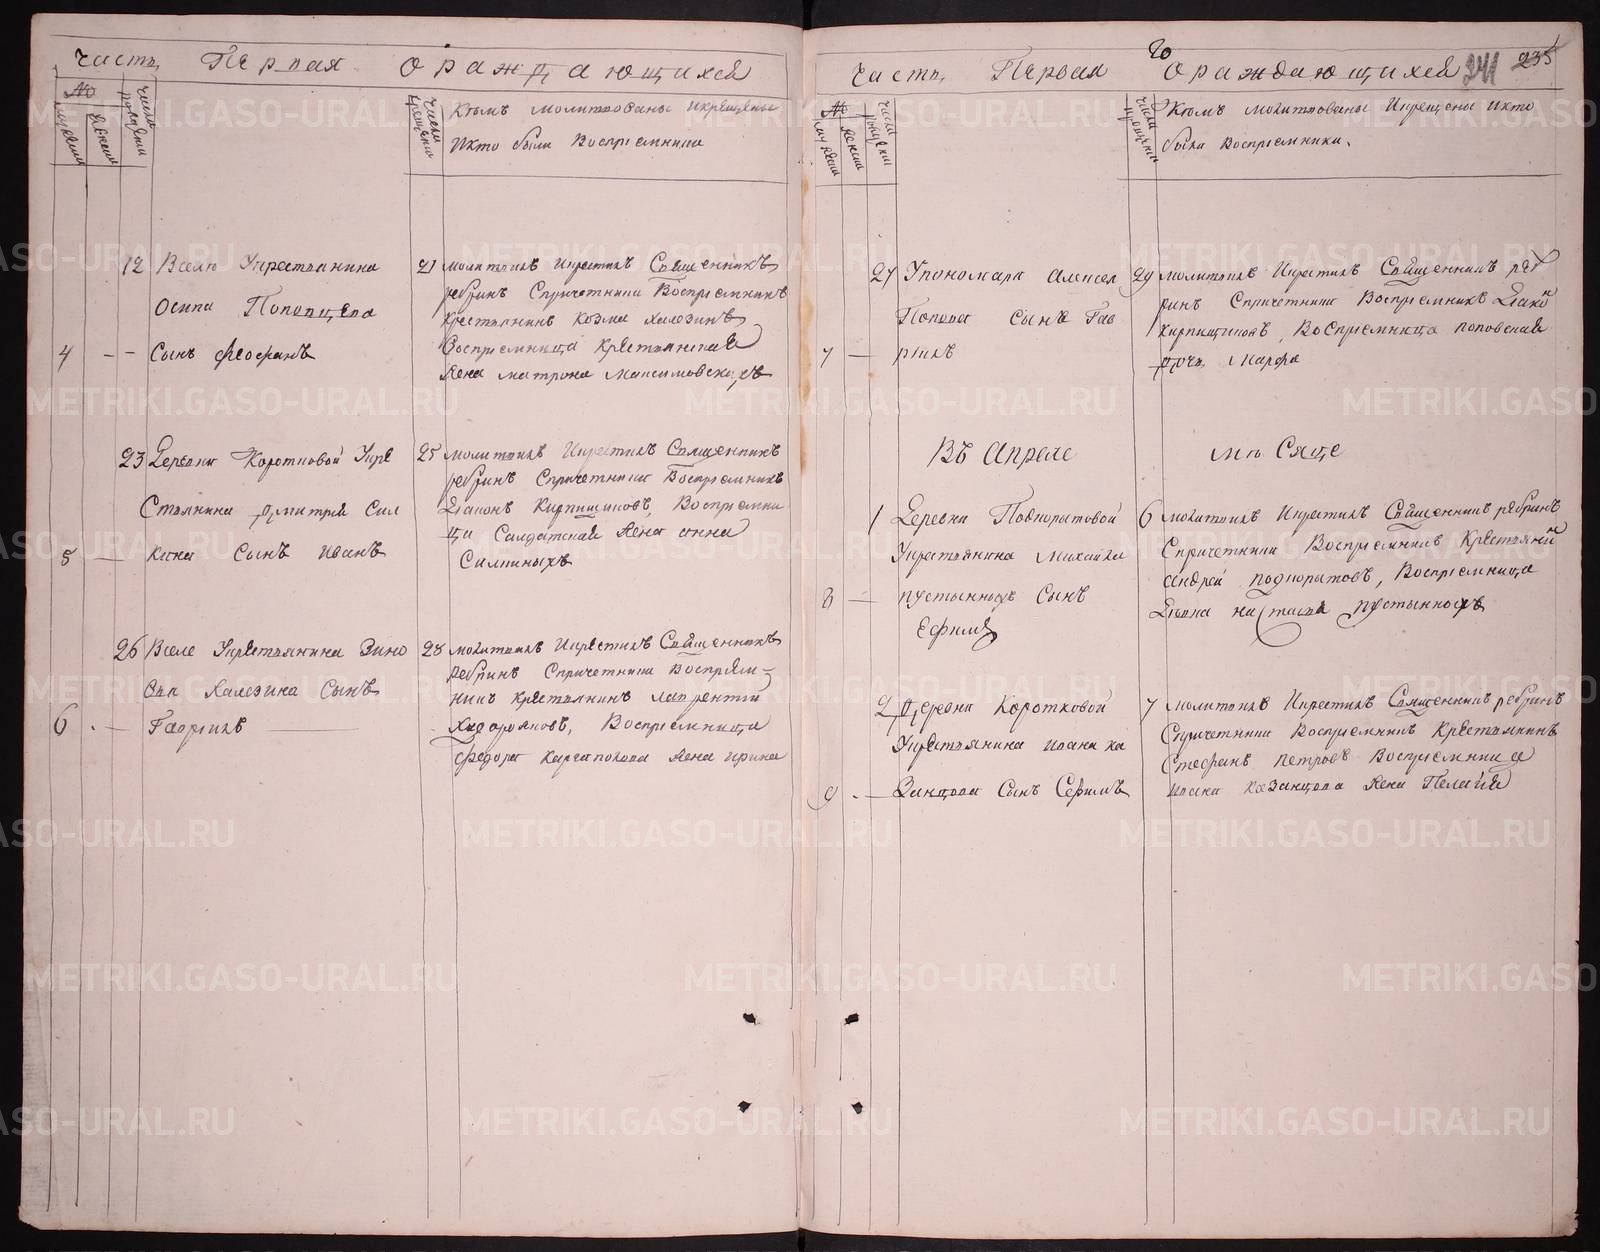 Часть Первая Ораждающихся
№ мужеска женска
Числа рождения
Числа крещения
Кѣмъ молитвованы икрещены
Икто были Воспрiемники
12 Вселѣ Укрестьянина
Осипа Попопцева
4 - - Сынъ феофанъ
21 молитвилъ Икрестилъ Священникъ
ребринъ Спричетники Воспрiемникъ
крестьянинъ козма халезинъ
Воспрiемница крестьянская
жена матрона Максимовскихъ
23 Деревни Коротковой Укре
Стьянина дмитрия Сил
5 — кина Сынъ иванъ
25 молитвилъ Икрестилъ Священникъ
ребринъ Спричетники Воспрiемникъ
Дiаконъ Кирпищиковъ, Воспрiемни
ца Салдатская жена анна
Силкиныхъ
26 Вселе Укрестьянина Зино
вiя Халезина Сынъ
6 - — Гавриилъ
28 молитвилъ Икрестилъ Священникъ
ребринъ Спричетники Воспрiем-
никъ крестьянинъ лаврентiй
Воспрiемница
федора жена ирина
241 235
Часть Первая Ораждающихся
№ мужеска женска
Числа рождения
Числа крещения
Кѣмъ молитвованы Икрещены Икто
были Воспрiемники.
27 Упономаря алексея
Попова Сынъ Гав
7 — рiилъ
29 молитвилъ Икрестилъ Священникъ реб
ринъ Спричетники Воспрiемникъ Дiакон
кирпищиковъ, Воспрiемница поповская
дочь Марфа
Въ Апреле мѣсяце
1 Деревни Подкорытовой
Укрестьянина Михайла
8 — пустынныхъ Сынъ
Ефимъ
6 молитвилъ Икрестилъ Священникъ ребринъ
Спричетники Воспрiемникъ Крестьянин
андрей подкорытовъ, Воспрiемница
пустынныхъ
2 деревни Коротковой
Укрестьянина ивана ка
9 - — Занцова Сынъ Сефимъ
7 молитвилъ Икрестилъ Священникъ ребринъ
Спричетники Воспрiемникъ Крестьянинъ
Стефанъ петровъ Воспрiемница
ивана казанцова жена Пелагiя
METRIKI.GASO-URAL.RU